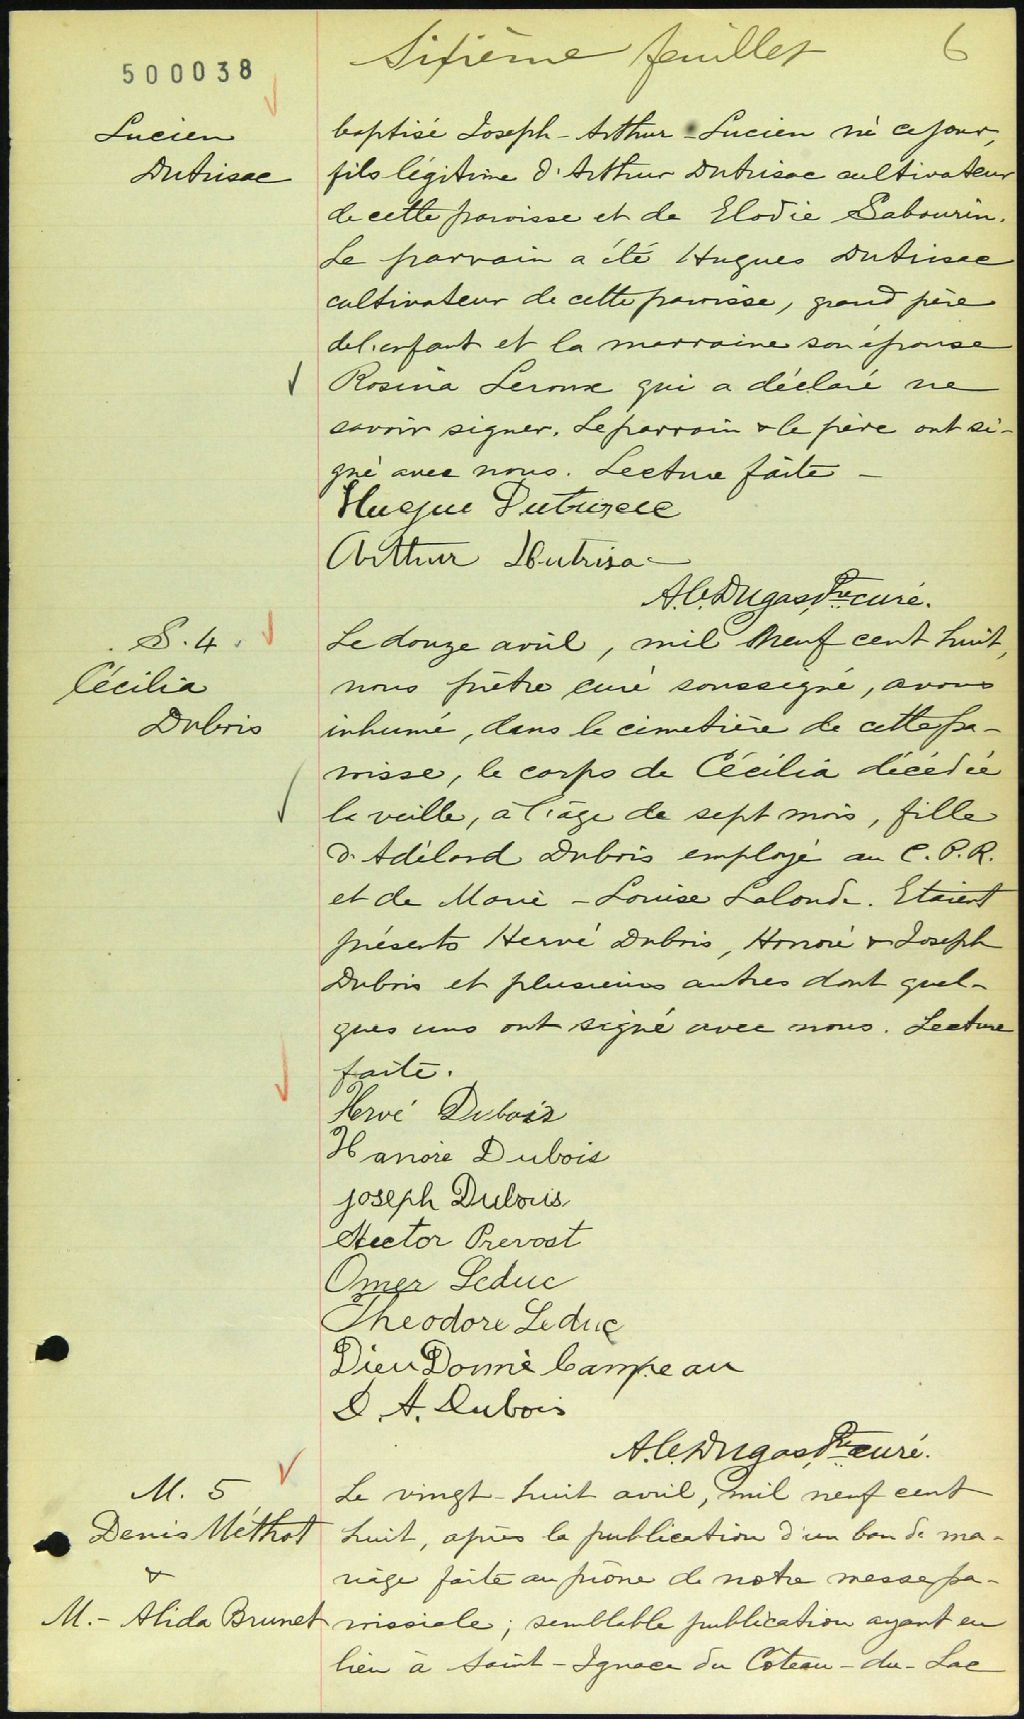 500038
Sixième feuillet 6
Lucien
Dutrisac
baptisé Joseph-Arthur-Lucien né ce jour,
fils légitime d'Arthur Dutrisac cultivateur
de cette paroisse et de Elodie Sabourin.
Le parrain a été Hugues Dutrisac
cultivateur de cette paroisse, grand père
de l'enfant et la marraine son épouse
Rosina Leroux qui a déclaré ne
savoir signer. Le parrain & le père ont si-
gné avec nous. Lecture faite -
Hugue Dutrisac
Arthur Dutrisac
A. C. Dugas, Ptre curé.
S. 4
Cécilia
Dubois
Le douze avril, mil neuf cent huit,
nous prêtre curé soussigné, avons
inhumé, dans le cimetière de cette pa-
roisse, le corps de Cécilia décédée
la veille, à l'âge de sept mois, fille
d'Adélard Dubois employé au C. P. R.
et de Marie-Louise Lalonde. Etaient
présents Hervé Dubois, Honoré & Joseph
Dubois et plusieurs autres dont quel-
ques uns ont signé avec nous. Lecture
faite.
Hervé Dubois
Hanoré Dubois
joseph Dubois
Hector Prevost
Omer Leduc
Theodore Leduc
Dieu Donné Campeau
D. A. Dubois
A. C. Dugas, Ptre curé.
M. 5
Denis Méthot
&
M.-Alida Brunet
Le vingt-huit avril, mil neuf cent
huit, après la publication d'un ban de ma-
riage faite au prône de notre messe pa-
roissiale; semblable publication ayant eu
lieu à Saint-Ignace du Côteau-du-Lac